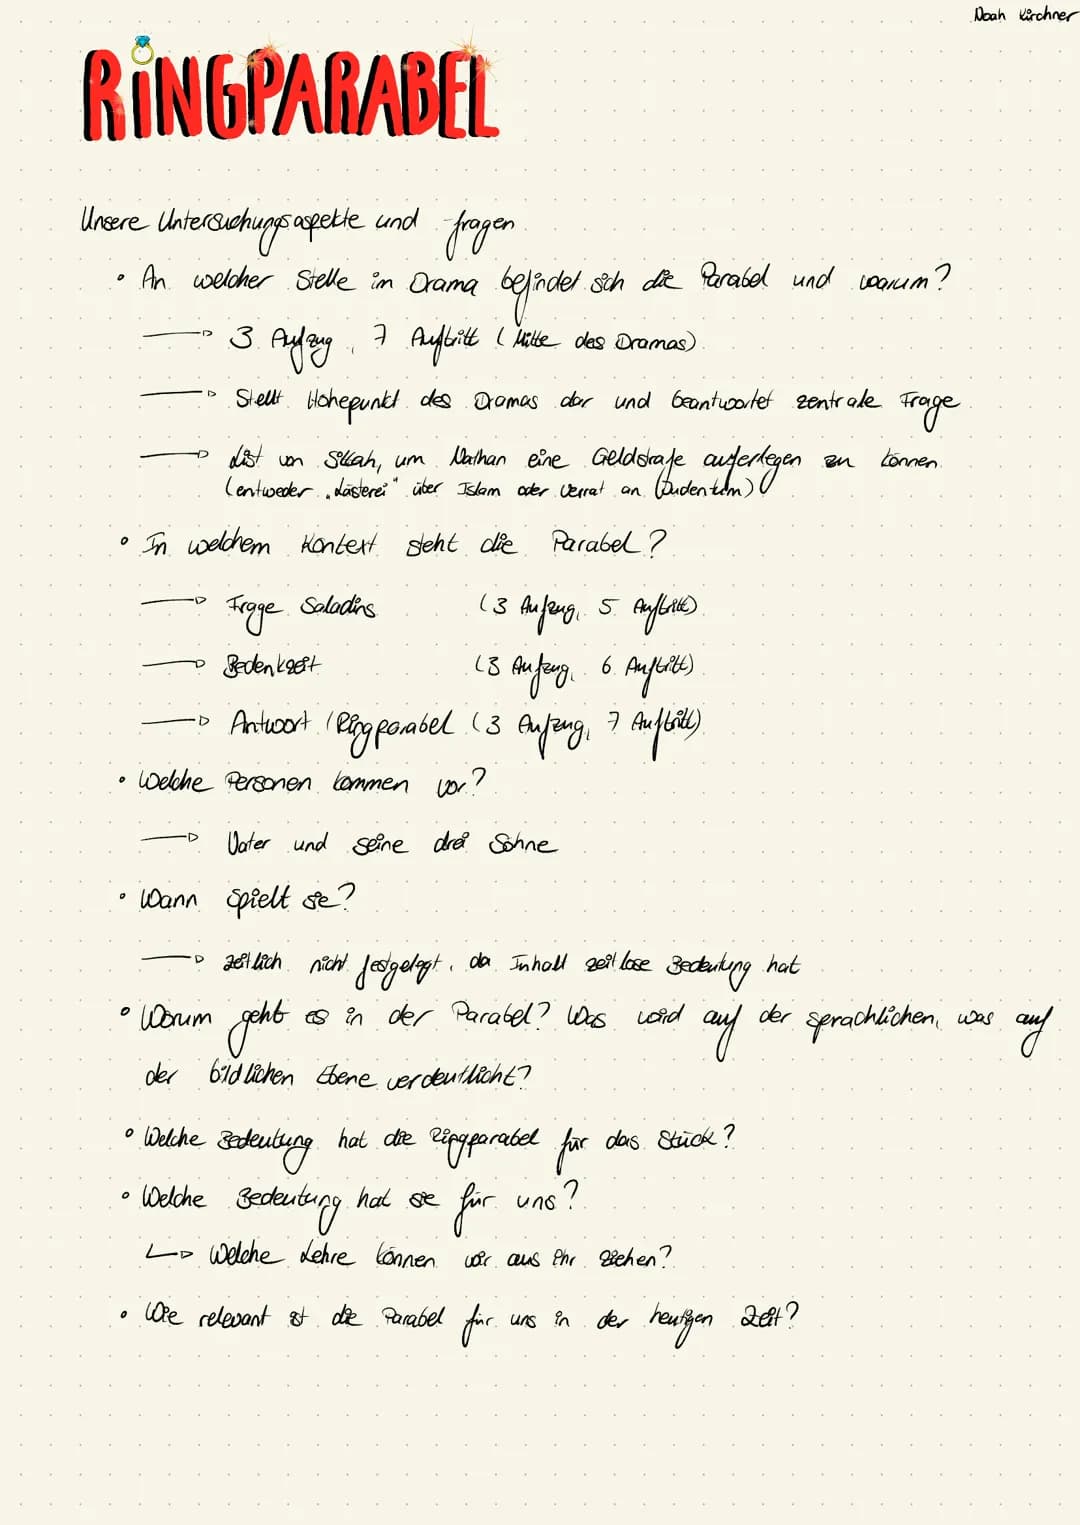 Noah Kirchner
RINGPARABEL
Unsere Untersuchungsaspekte und -fragen
• An welcher Stelle im Drama befindet sich die Parabel und warum?
→ 3 Aufzug, 7 Auftritt (Mitte des Dramas)
→ Stellt Höhepunkt des Dramas dar und beantwortet zentrale Frage
→ List von Sittah, um Nathan eine Geldstrafe auferlegen zu können
(entweder „Lästerei" über Islam oder Verrat an Judentum)
• In welchem Kontext steht die Parabel?
→ Frage Saladins (3 Aufzug, 5 Auftritt)
→ Bedenkzeit (3 Aufzug, 6 Auftritt)
→ Antwort / Ringparabel (3 Aufzug, 7 Auftritt)
• Welche Personen kommen vor?
→ Vater und seine drei Söhne
• Wann spielt sie?
→ zeitlich nicht festgelegt, da Inhalt zeitlose Bedeutung hat
• Worum geht es in der Parabel? Was wird auf der sprachlichen, was auf
der bildlichen Ebene verdeutlicht?
• Welche Bedeutung hat die Ringparabel für das Stück?
• Welche Bedeutung hat sie für uns?
↳ Welche Lehre können wir aus ihr ziehen?
• Wie relevant ist die Parabel für uns in der heutigen Zeit?